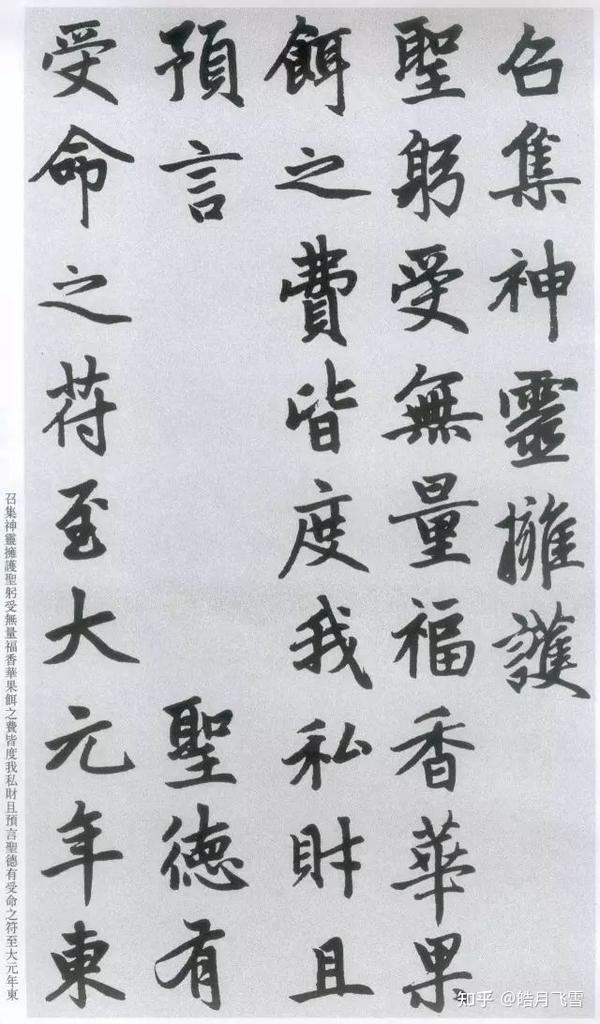 召集神靈擁護
聖躬受無量福香華果
餌之費皆度我私財且
預言 聖德有
受命之符至大元年東
召集神靈擁護聖躬受無量福香華果餌之費皆度我私財且預言聖德有受命之符至大元年東
知乎 @皓月飞雪